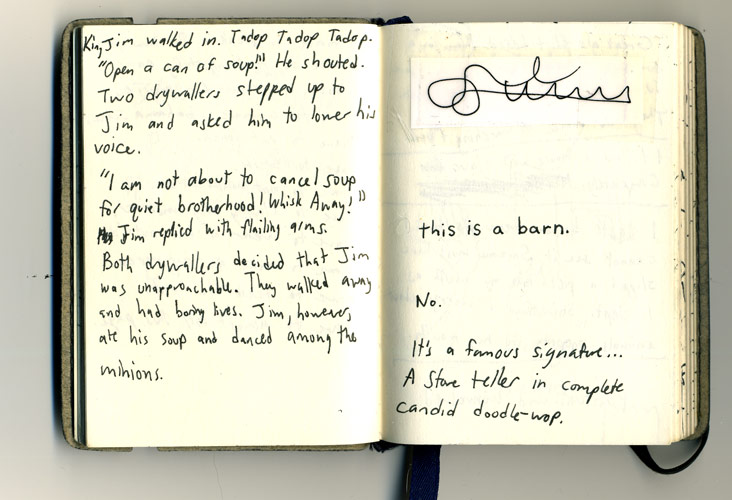 King Jim walked in. Tadop Tadop Tadop.
"Open a can of soup!" He shouted.
Two drywallers stepped up to
Jim and asked him to lower his
voice.
"I am not about to cancel soup
for quiet brotherhood! Whisk Away!"
Jim replied with flailing arms.
Both drywallers decided that Jim
was unapproachable. They walked away
and had boring lives. Jim, however,
ate his soup and danced among the
minions.
this is a barn.
No.
It's a famous signature...
A Store teller in complete
candid doodle-wop.